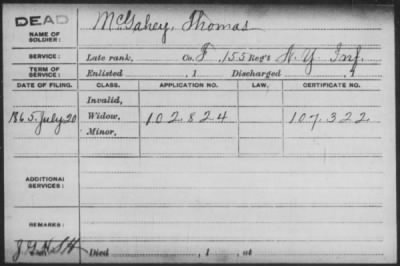 DEAD
NAME OF SOLDIER: McGahey, Thomas
SERVICE: Late rank, Co. F, 155 Reg't N.Y. Inf.
TERM OF SERVICE: Enlisted , 1 Discharged , 1
DATE OF FILING. CLASS. APPLICATION NO. LAW. CERTIFICATE NO.
Invalid,
1865, July 20 Widow, 102824 107322
Minor,
ADDITIONAL SERVICES:
REMARKS:
Died , 1 , at